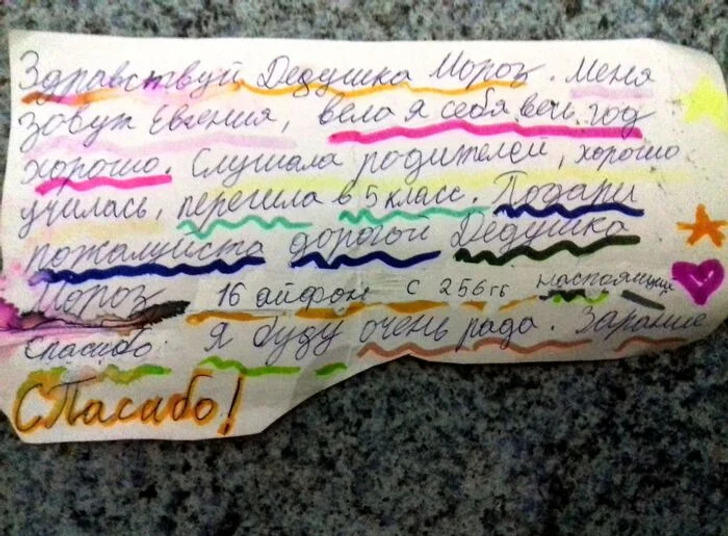 Здравствуй, Дедушка Мороз. Меня
зовут Евгения, вела я себя весь год
хорошо. Слушала родителей, хорошо
училась, перешла в 5 класс. Подари
пожалуйста дорогой Дедушка
Мороз 16 айфон с 256гб настоящий
Я буду очень рада. Заранее
спасибо.
СПасибо!